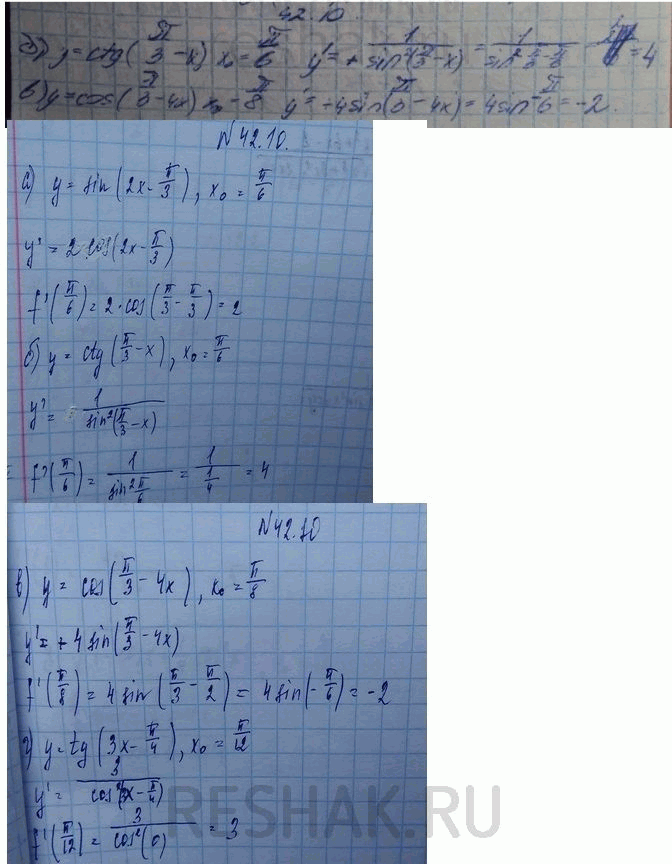 42.10.
б) y = ctg(π/3 - x) x₀ = π/6 y' = + 1/sin²(π/3 - x) = 1/sin² π/3 - π/6 = 4
в) y = cos(π/3 - 4x) x₀ = π/8 y' = +4sin(π/3 - 4x) = 4sin - π/6 = -2.
N42.10.
а) y = sin(2x - π/3), x₀ = π/6
y' = 2 cos(2x - π/3)
f'(π/6) = 2 · cos(π/3 - π/3) = 2
б) y = ctg(π/3 - x), x₀ = π/6
y' = 1/sin²(π/3 - x)
f'(π/6) = 1/sin² π/6 = 1/(1/4) = 4
N42.10
в) y = cos(π/3 - 4x), x₀ = π/8
y' = +4 sin(π/3 - 4x)
f'(π/8) = 4 sin(π/3 - π/2) = 4 sin(-π/6) = -2
г) y = tg(3x - π/4), x₀ = π/12
y' = 3/cos²(3x - π/4)
f'(π/12) = 3/cos²(0) = 3
RESHAK.RU